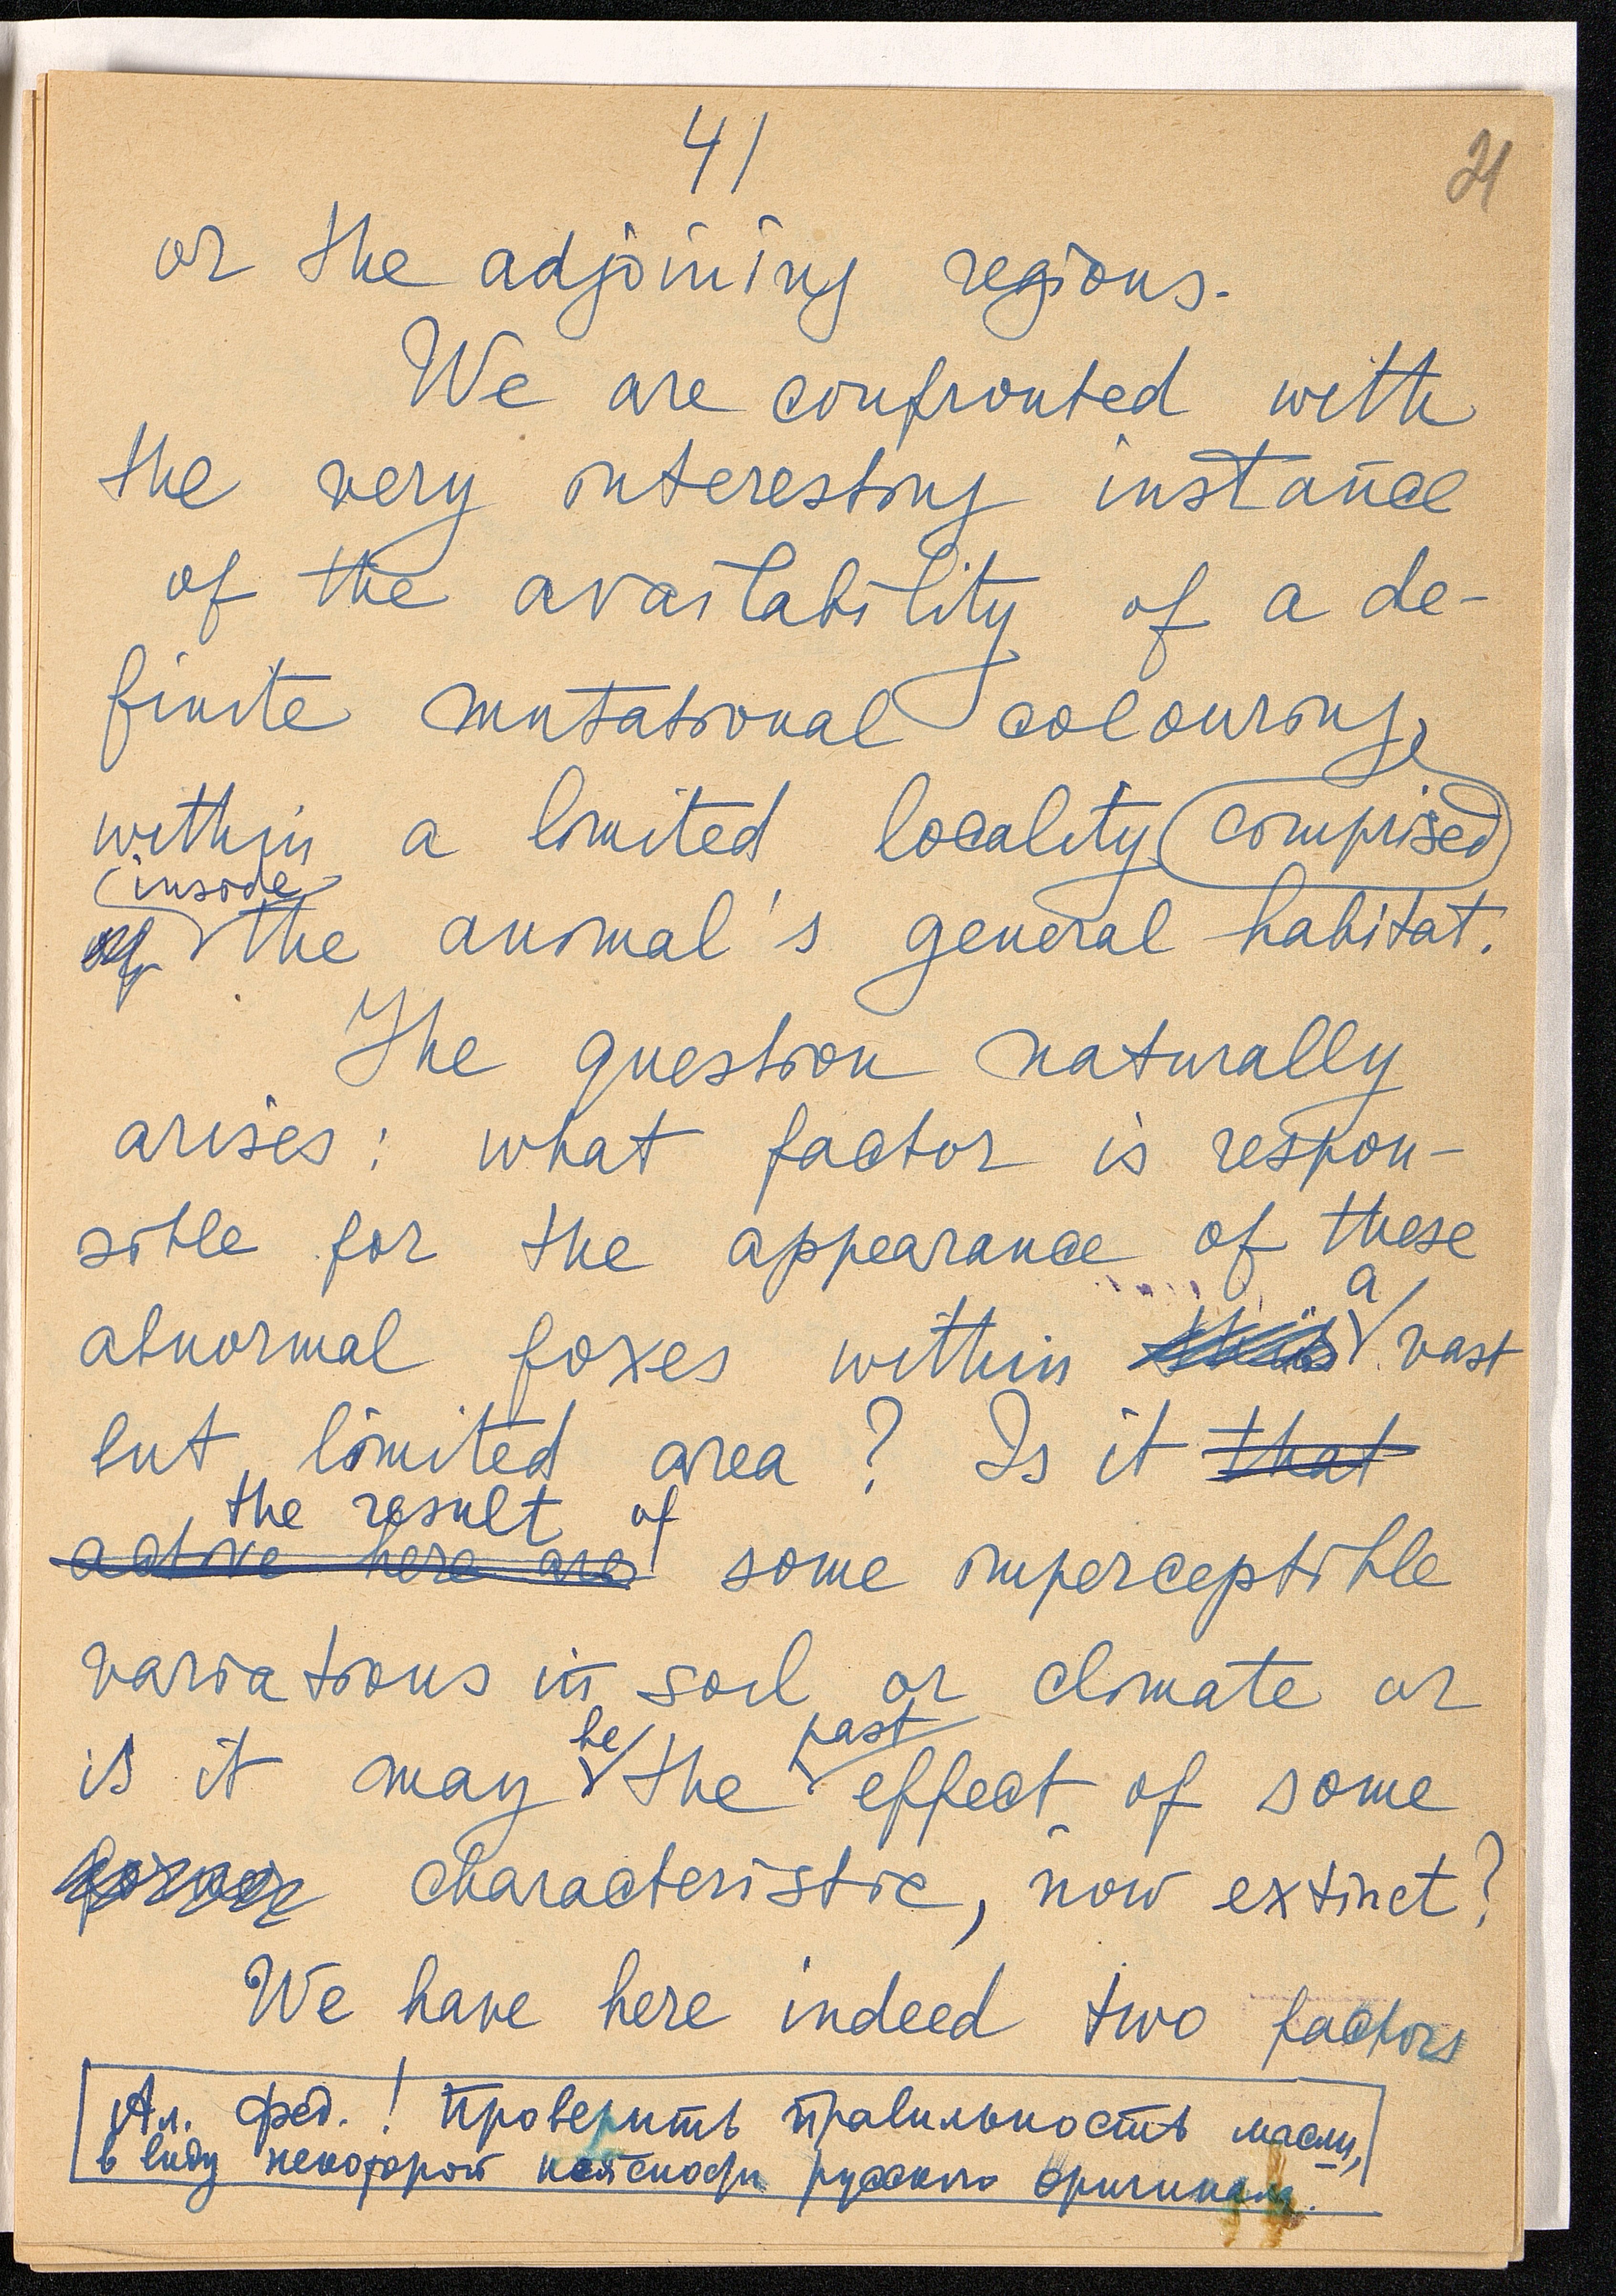 41
21
or the adjoining regions.
We are confronted with
the very interesting instance
of the availability of a de-
finite mutational colouring,
within a limited locality comprised
inside
of the animal's general habitat.
The question naturally
arises: what factor is respon-
sible for the appearance of these
a
abnormal foxes within this vast
but limited area? Is it that
the result of
active here are some imperceptible
variations in soil or climate or
be past
is it may the effect of some
former characteristic, now extinct?
We have here indeed two factors
Ал. Фед.! Проверить правильность мысли,
в виду некоторой неясности русского оригинала.